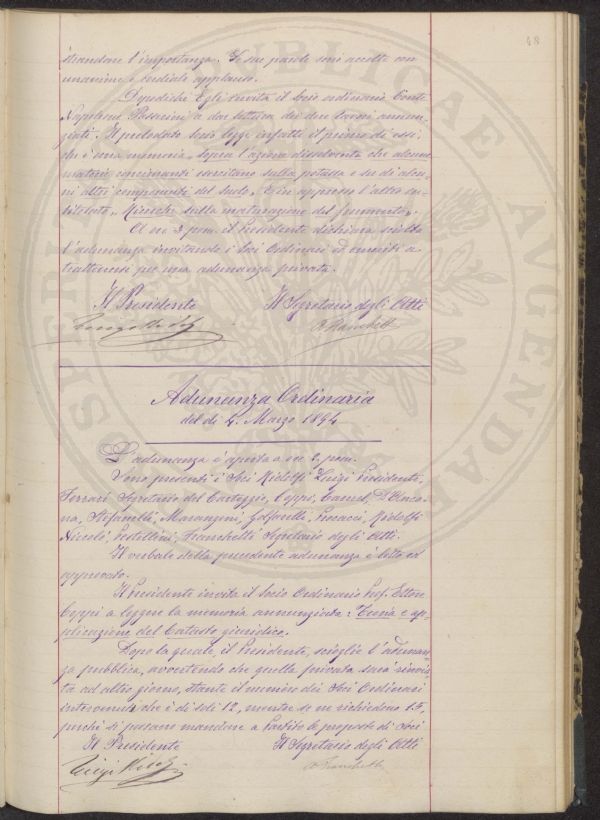 48
strandone l'importanza. Le sue parole sono accolte con
unanime e cordiale applauso.
Dopodichè Egli invita il Socio ordinario Conte
Napoleone Passerini a dar lettura dei due lavori annun-
ziati. Il prelodato Socio legge infatti il primo di essi,
che è una memoria „Sopra l'azione dissolvente che alcune
materie concimanti esercitano sulla potassa e su di alcu-
ni altri componenti del suolo. E in appresso l'altro in-
titolato „Ricerche sulla maturazione del frumento„.
A ore 3 pom. il Presidente dichiara sciolta
l'adunanza invitando i Soci Ordinari ed emeriti a
trattenersi per una adunanza privata.
Il Presidente Il Segretario degli Atti
Luigi Ridolfi Franchetti
Adunanza Ordinaria
del dì 4. Marzo 1894
L'adunanza è aperta a ore 2 pom.
Sono presenti i Soci Ridolfi Luigi Presidente,
Ferrari Segretario del Carteggio, Coppi, Caruel, D'Anco-
na, Stefanelli, Marangoni, Golfarelli, Procacci, Ridolfi
Niccolò, Pestellini, Franchetti Segretario degli Atti.
Il verbale della precedente adunanza è letto ed
approvato.
Il Presidente invita il Socio Ordinario Prof. Ettore
Coppi a leggere la memoria annunziata: Teoria e ap-
plicazione del Catasto giuridico.
Dopo la quale, il Presidente, scioglie l'adunan-
za pubblica, avvertendo che quella privata sarà rinvia-
ta ad altro giorno, stante il numero dei Soci Ordinari
intervenuti che è di soli 12, mentre se ne richiedono 15,
perchè si possano mandare a Partito le proposte di Soci
Il Presidente Il Segretario degli Atti
Luigi Ridolfi Franchetti